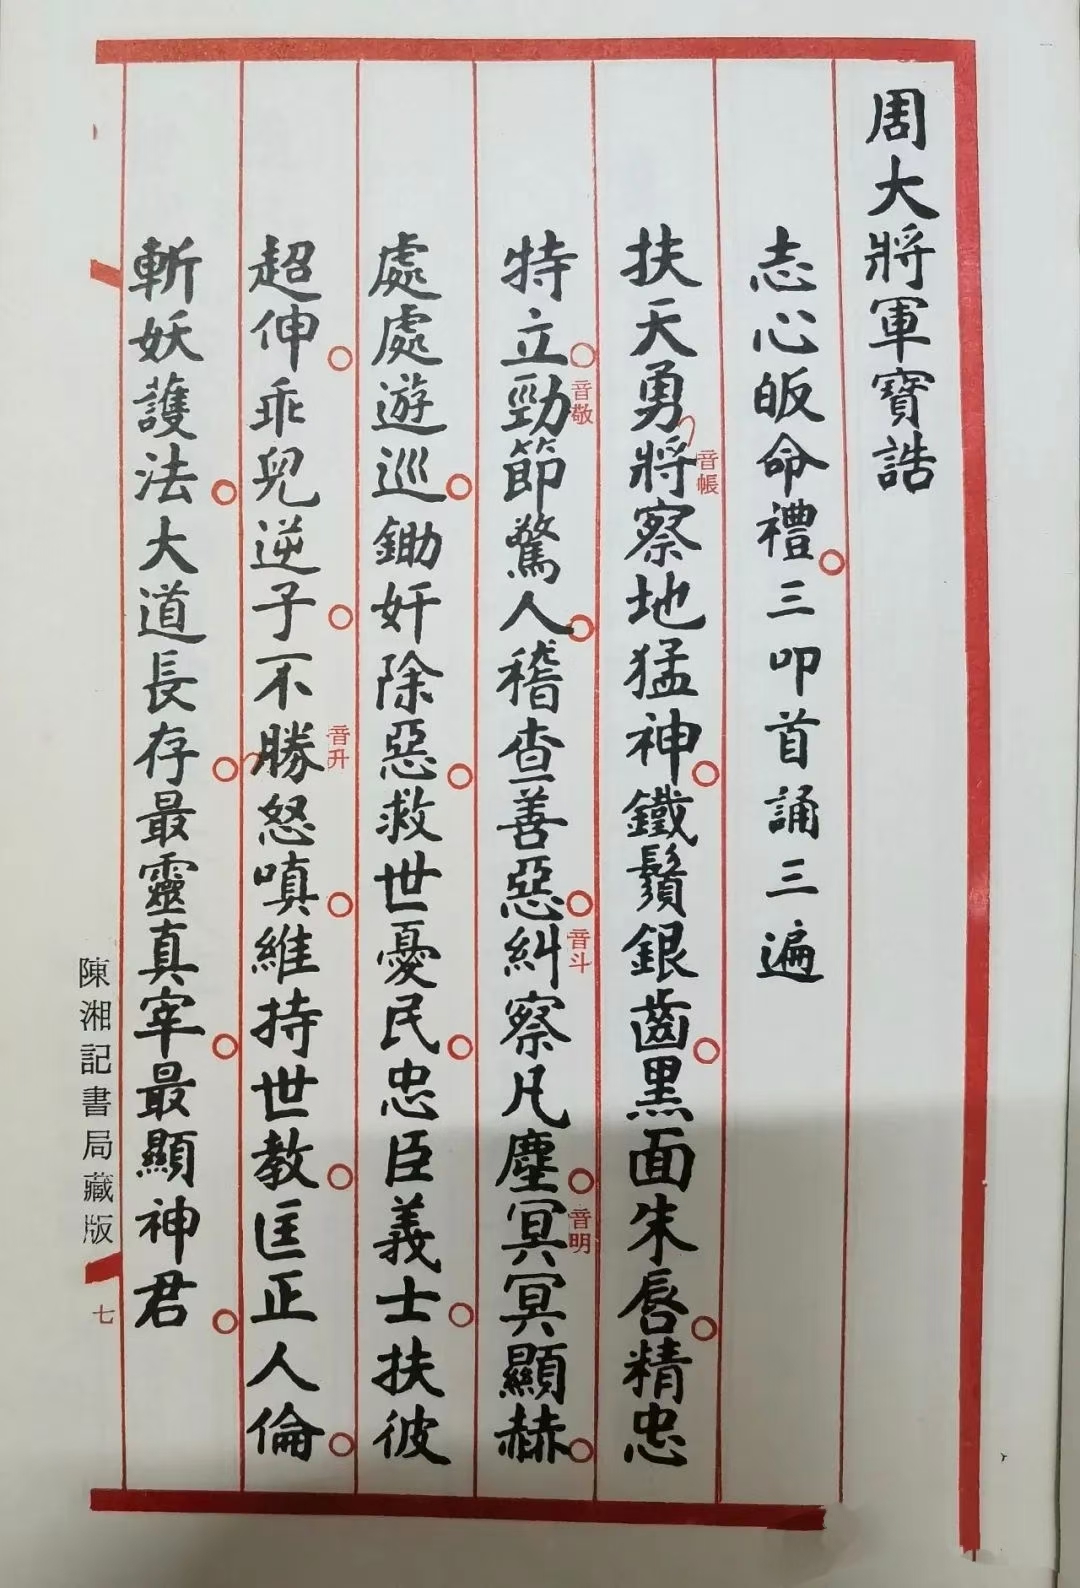 周大將軍寶誥
志心皈命禮三叩首誦三遍
扶天勇將察地猛神鐵鬚銀齒黑面朱唇精忠
音帳
特立勁節驚人稽查善惡糾察凡塵冥冥顯赫
音敬
音斗
音明
處處遊巡鋤奸除惡救世憂民忠臣義士扶彼
超伸乖兒逆子不勝怒嗔維持世教匡正人倫
音升
斬妖護法大道長存最靈真宰最顯神君
陳湘記書局藏版
七